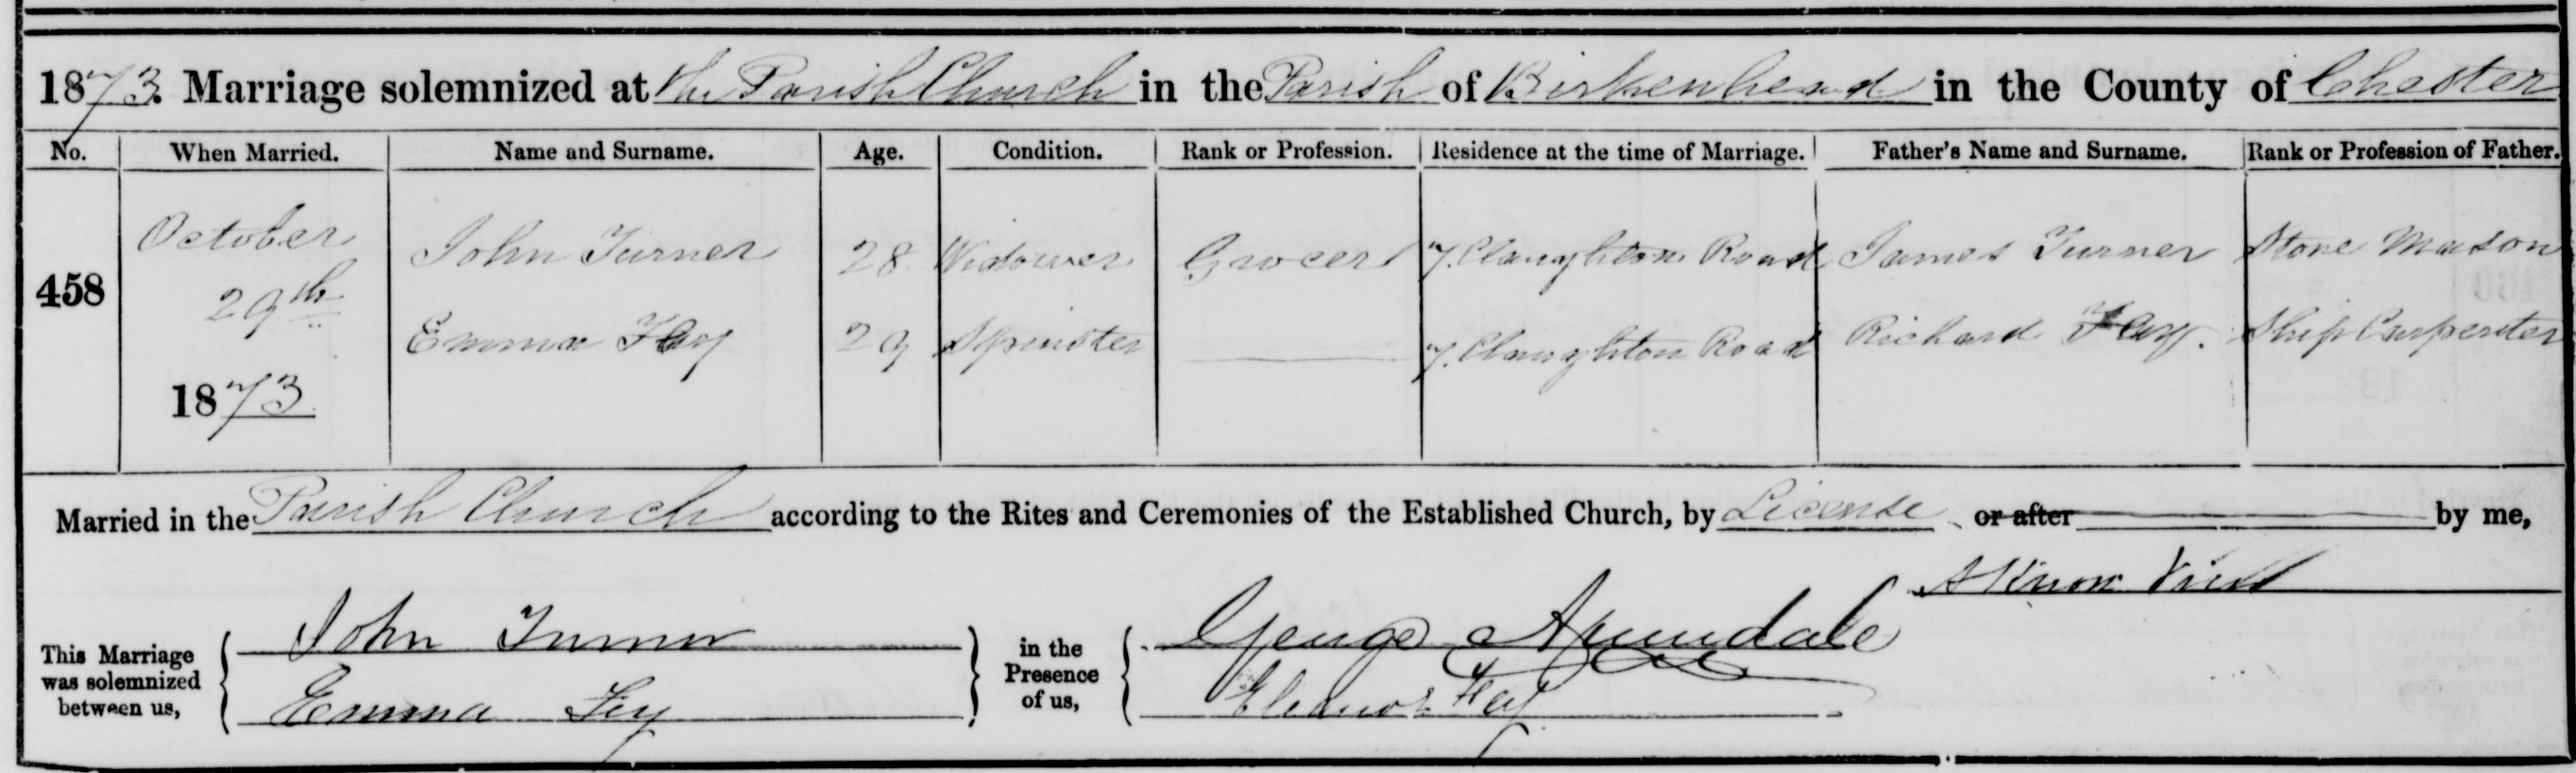 1873. Marriage solemnized at the Parish Church in the Parish of Birkenhead in the County of Chester
No. When Married. Name and Surname. Age. Condition. Rank or Profession. Residence at the time of Marriage. Father's Name and Surname. Rank or Profession of Father.
458 October 29th 1873
John Turner 28 Widower Grocer 7. Claughton Road James Turner Stone Mason
Emma Fey 29 Spinster 7. Claughton Road Richard Fey. Ship Carpenter
Married in the Parish Church according to the Rites and Ceremonies of the Established Church, by License or after by me,
This Marriage was solemnized between us,
John Turner
Emma Fey
in the Presence of us,
George Arundale
Eleanor Fey